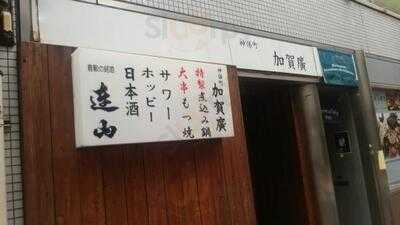 神保町
加賀廣
神保町
加賀廣
特製煮込み鍋
大串もつ焼
サワー
ホッピー
日本酒
蓬山